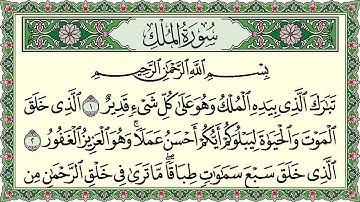 سُورَةُ المُلْكِ
بِسْمِ ٱللَّهِ ٱلرَّحْمَٰنِ ٱلرَّحِيمِ
تَبَٰرَكَ ٱلَّذِى بِيَدِهِ ٱلْمُلْكُ وَهُوَ عَلَىٰ كُلِّ شَىْءٍ قَدِيرٌ ١ ٱلَّذِى خَلَقَ
ٱلْمَوْتَ وَٱلْحَيَوٰةَ لِيَبْلُوَكُمْ أَيُّكُمْ أَحْسَنُ عَمَلًا ۚ وَهُوَ ٱلْعَزِيزُ ٱلْغَفُورُ ٢
ٱلَّذِى خَلَقَ سَبْعَ سَمَٰوَٰتٍ طِبَاقًا ۖ مَّا تَرَىٰ فِى خَلْقِ ٱلرَّحْمَٰنِ مِن